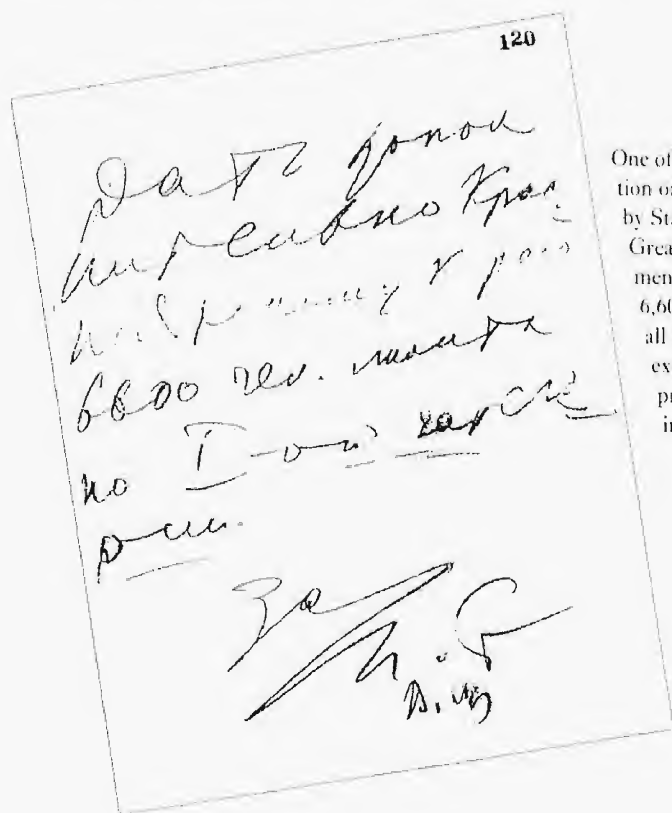 120
Дать допол
нительно Крас
ноярскому краю
6600 чел. лимита
по I-ой категории
рии.
За
И. Ст
One of
tion or
by St
Grea
men
6,60
all
ex
pr
in